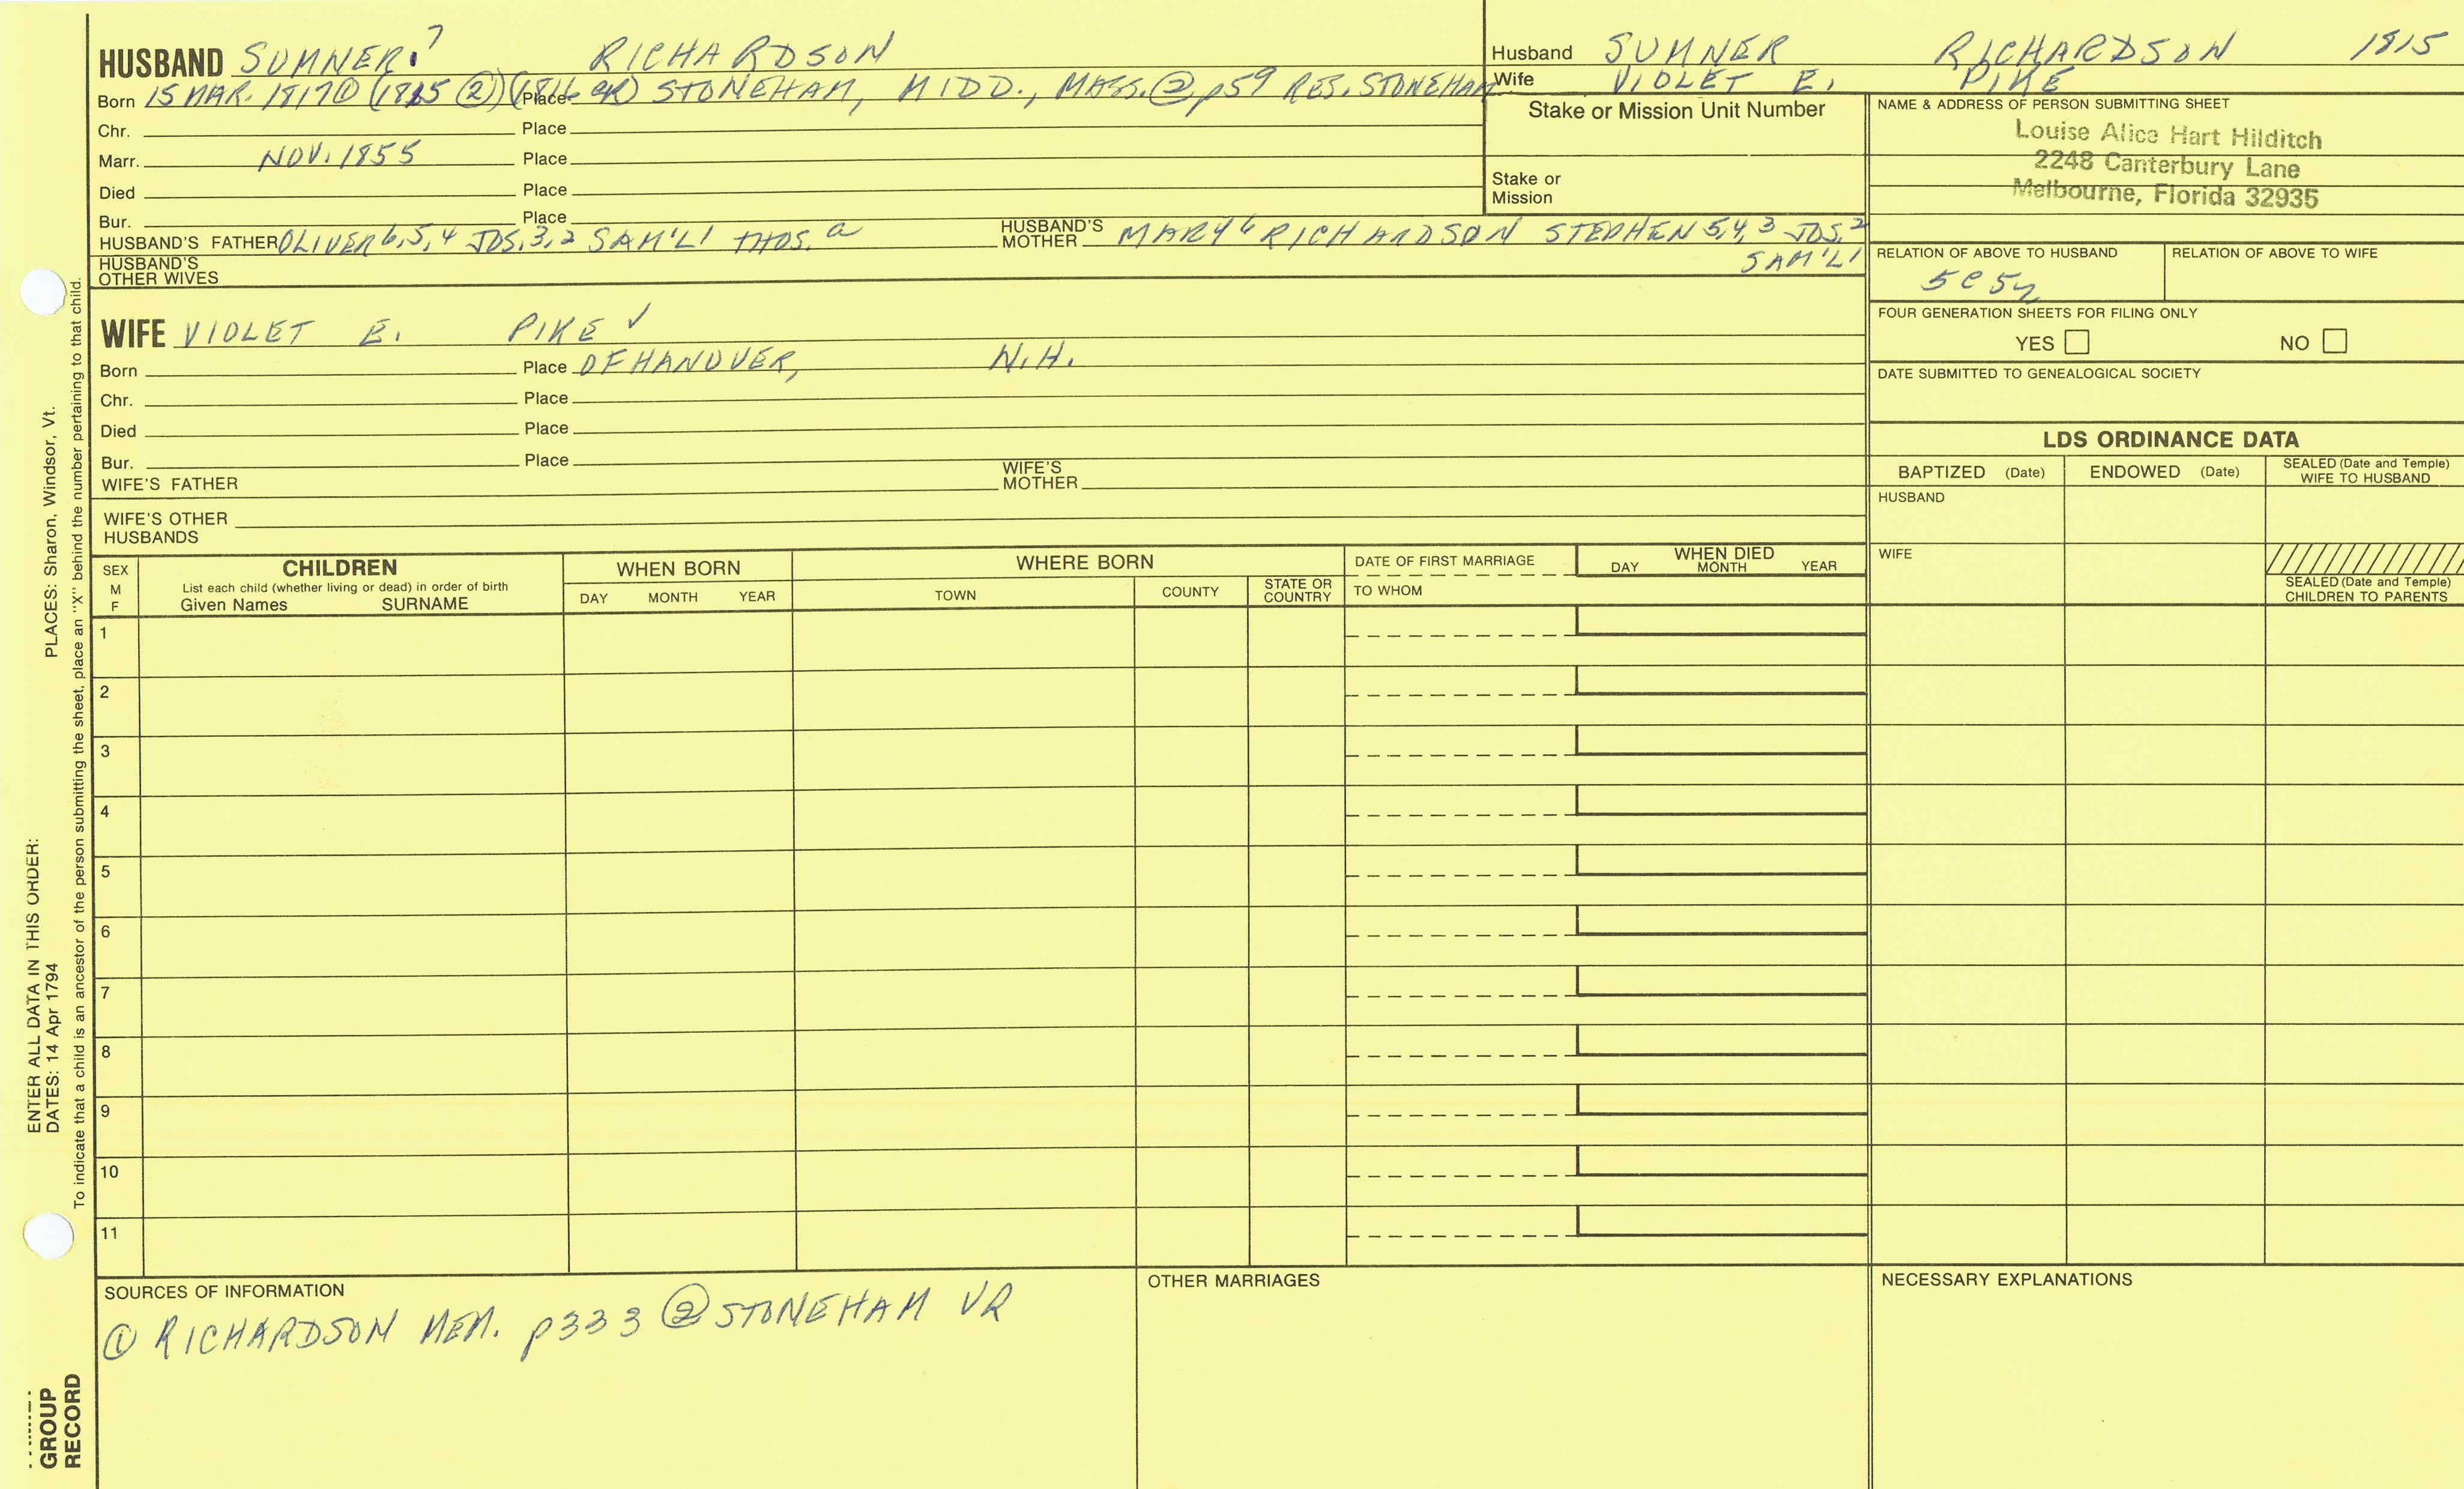 HUSBAND SUMNER7 RICHARDSON
Born 15 MAR. 1817① (1815 ②) (1816 GR) Place STONEHAM, MIDD., MASS.② p59 RES. STONEHAM
Chr. Place
Marr. NOV. 1855 Place
Died Place
Bur. Place
HUSBAND'S FATHER OLIVER 6,5,4 JOS. 3,2 SAM'L 1 THOS. a HUSBAND'S MOTHER MARY 6 RICHARDSON STEPHEN 5,4,3 JOS. 2
SAM'L 1
HUSBAND'S OTHER WIVES
WIFE VIOLET E. PIKE ✓
Born Place OF HANOVER, N.H.
Chr. Place
Died Place
Bur. Place
WIFE'S FATHER WIFE'S MOTHER
WIFE'S OTHER HUSBANDS
Husband SUMNER RICHARDSON 1815
Wife VIOLET E. PIKE
Stake or Mission Unit Number
Stake or Mission
NAME & ADDRESS OF PERSON SUBMITTING SHEET
Louise Alice Hart Hilditch
2248 Canterbury Lane
Melbourne, Florida 32935
RELATION OF ABOVE TO HUSBAND RELATION OF ABOVE TO WIFE
5C5
FOUR GENERATION SHEETS FOR FILING ONLY
YES NO
DATE SUBMITTED TO GENEALOGICAL SOCIETY
LDS ORDINANCE DATA
BAPTIZED (Date) ENDOWED (Date) SEALED (Date and Temple) WIFE TO HUSBAND
HUSBAND
WIFE
SEALED (Date and Temple) CHILDREN TO PARENTS
SEX M F
CHILDREN
List each child (whether living or dead) in order of birth
Given Names SURNAME
WHEN BORN
DAY MONTH YEAR
WHERE BORN
TOWN COUNTY STATE OR COUNTRY
DATE OF FIRST MARRIAGE
TO WHOM
WHEN DIED
DAY MONTH YEAR
1
2
3
4
5
6
7
8
9
10
11
SOURCES OF INFORMATION
① RICHARDSON MEM. p333 ② STONEHAM VR
OTHER MARRIAGES
NECESSARY EXPLANATIONS
ENTER ALL DATA IN THIS ORDER:
DATES: 14 Apr 1794 PLACES: Sharon, Windsor, Vt.
To indicate that a child is an ancestor of the person submitting the sheet, place an "X" behind the number pertaining to that child.
GROUP
RECORD